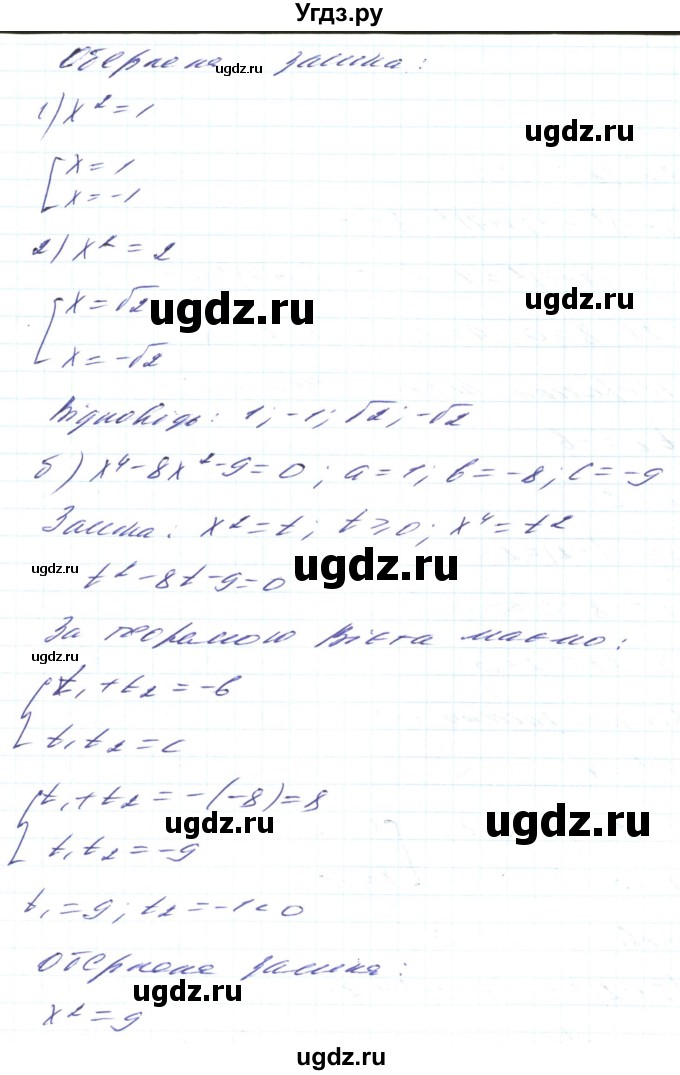 Угдз.ру
Обернена заміна:
ugdz.ru
1) x² = 1
ugdz.ru
[ x = 1
x = -1
2) x² = 2
[ x = √2
ugdz.ru
ugdz.ru
x = -√2
Відповідь: 1; -1; √2; -√2
б) x⁴ - 8x² - 9 = 0; a = 1; b = -8; c = -9
Заміна: x² = t; t ≥ 0; x⁴ = t²
ugdz.ru
t² - 8t - 9 = 0
ugdz.ru
За теоремою Вієта маємо:
ugdz.ru
{ t₁ + t₂ = -b
t₁t₂ = c
{ t₁ + t₂ = -(-8) = 8
ugdz.ru
ugdz.ru
t₁t₂ = -9
t₁ = 9; t₂ = -1 < 0
Обернена заміна:
ugdz.ru
x² = 9
ugdz.ru